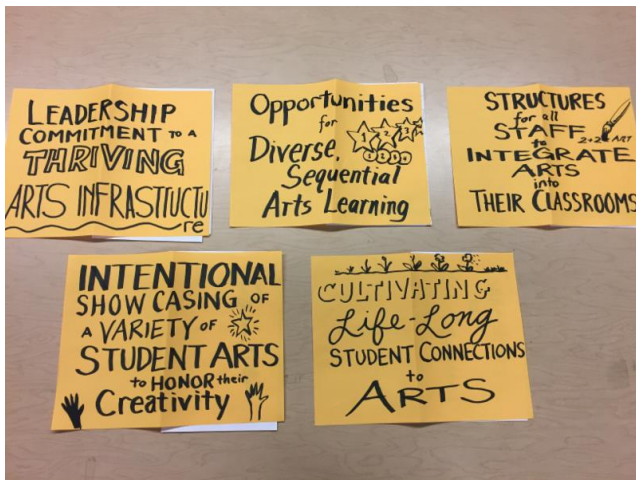 LEADERSHIP
COMMITMENT TO A
THRIVING
ARTS INFRASTIUCTU
re
Opportunities
for
Diverse,
Sequential
Arts Learning
STRUCTURES
for all
STAFF
to
INTEGRATE
ARTS
into
THEIR CLASSROOMS
INTENTIONAL
SHOW CASING OF
A VARIETY OF
STUDENT ARTS
to HONOR their
Creativity
CULTIVATING
Life-Long
STUDENT CONNECTIONS
to
ARTS